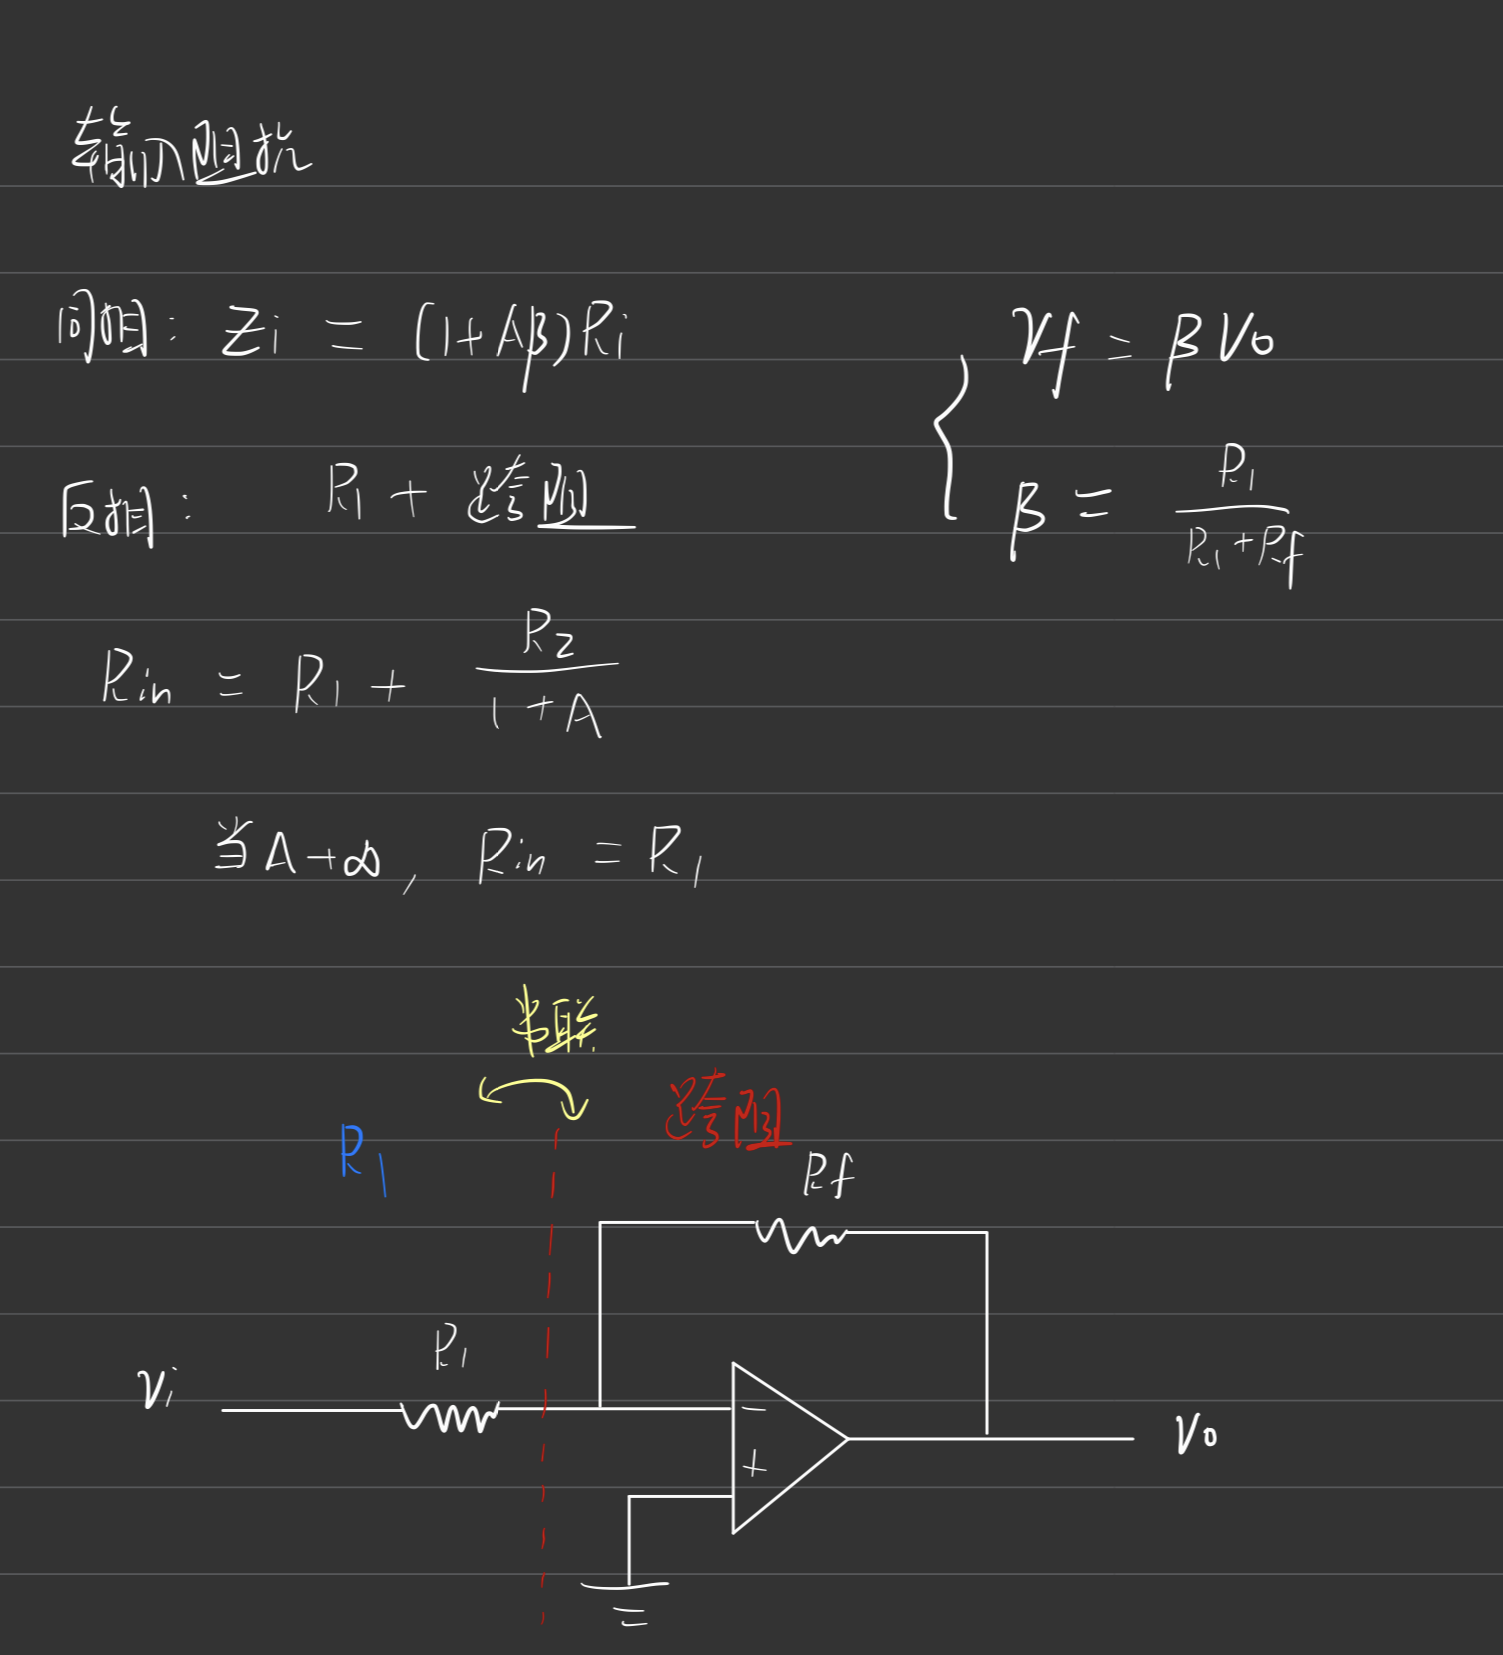 输入阻抗
同相: Zi = (1+Aβ)Ri
Vf = βVo
反相: R1 + 跨阻
β = R1/(R1+Rf)
Rin = R1 + R2/(1+A)
当A→∞, Rin = R1
串联
跨阻
R1
Rf
R1
Vi
−
Vo
+